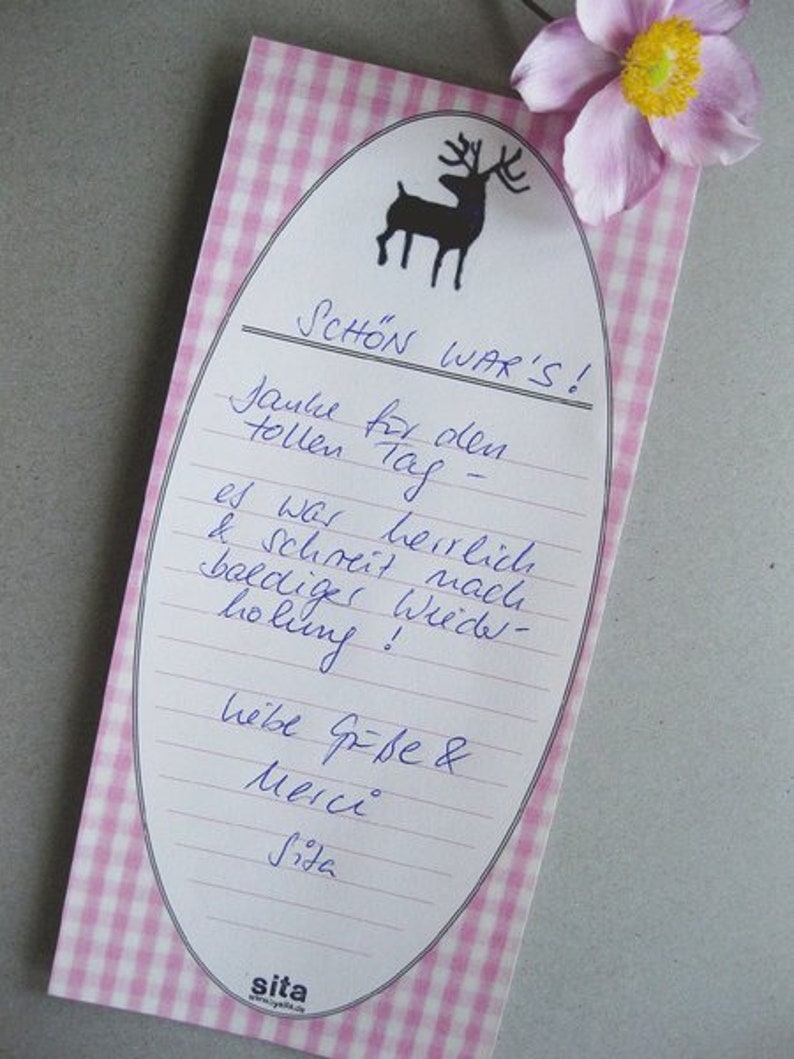 SCHÖN WAR'S!
Danke für den
tollen Tag -
es war herrlich
& schreit nach
baldiger Wieder-
holung!
Liebe Grüße &
Merci
Sita
sita
www.bysita.de